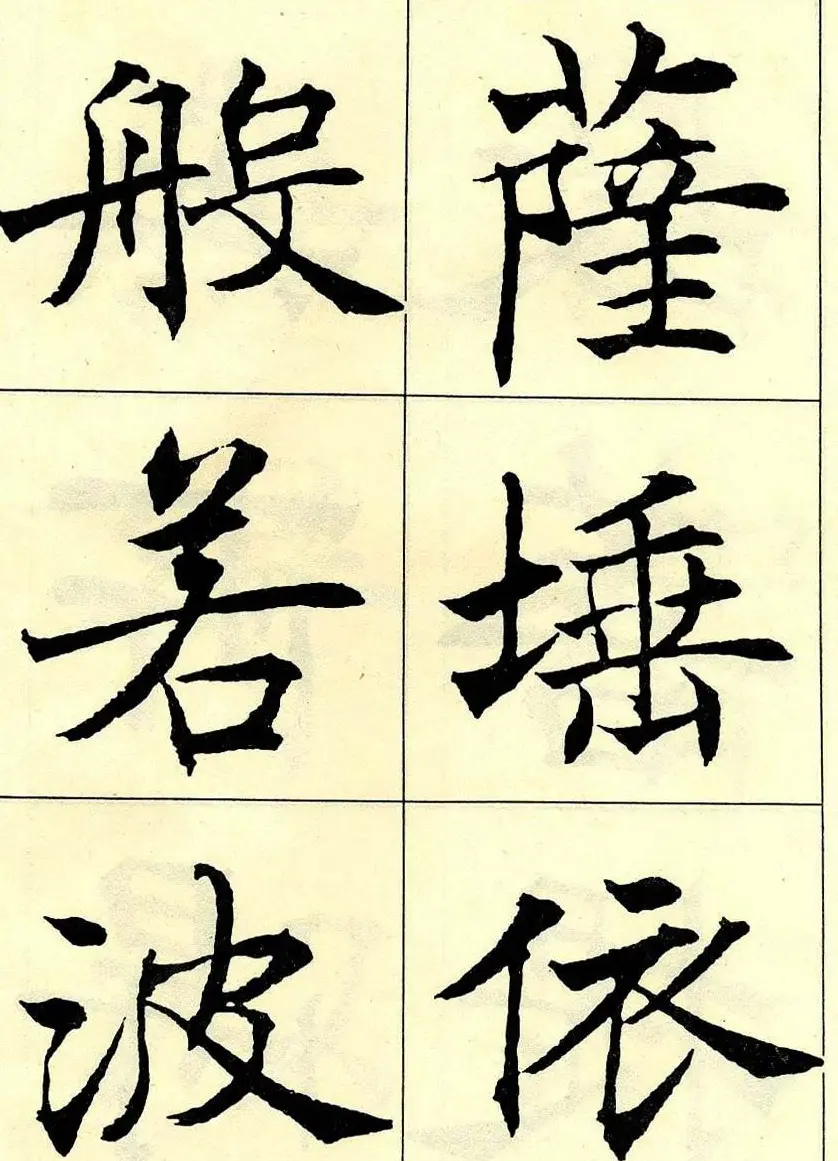 薩埵依
般若波